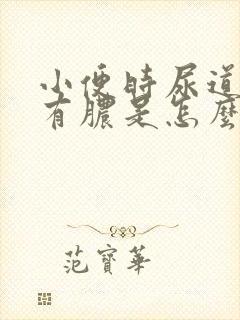 小便时尿道
有脓是怎麼
范寶華